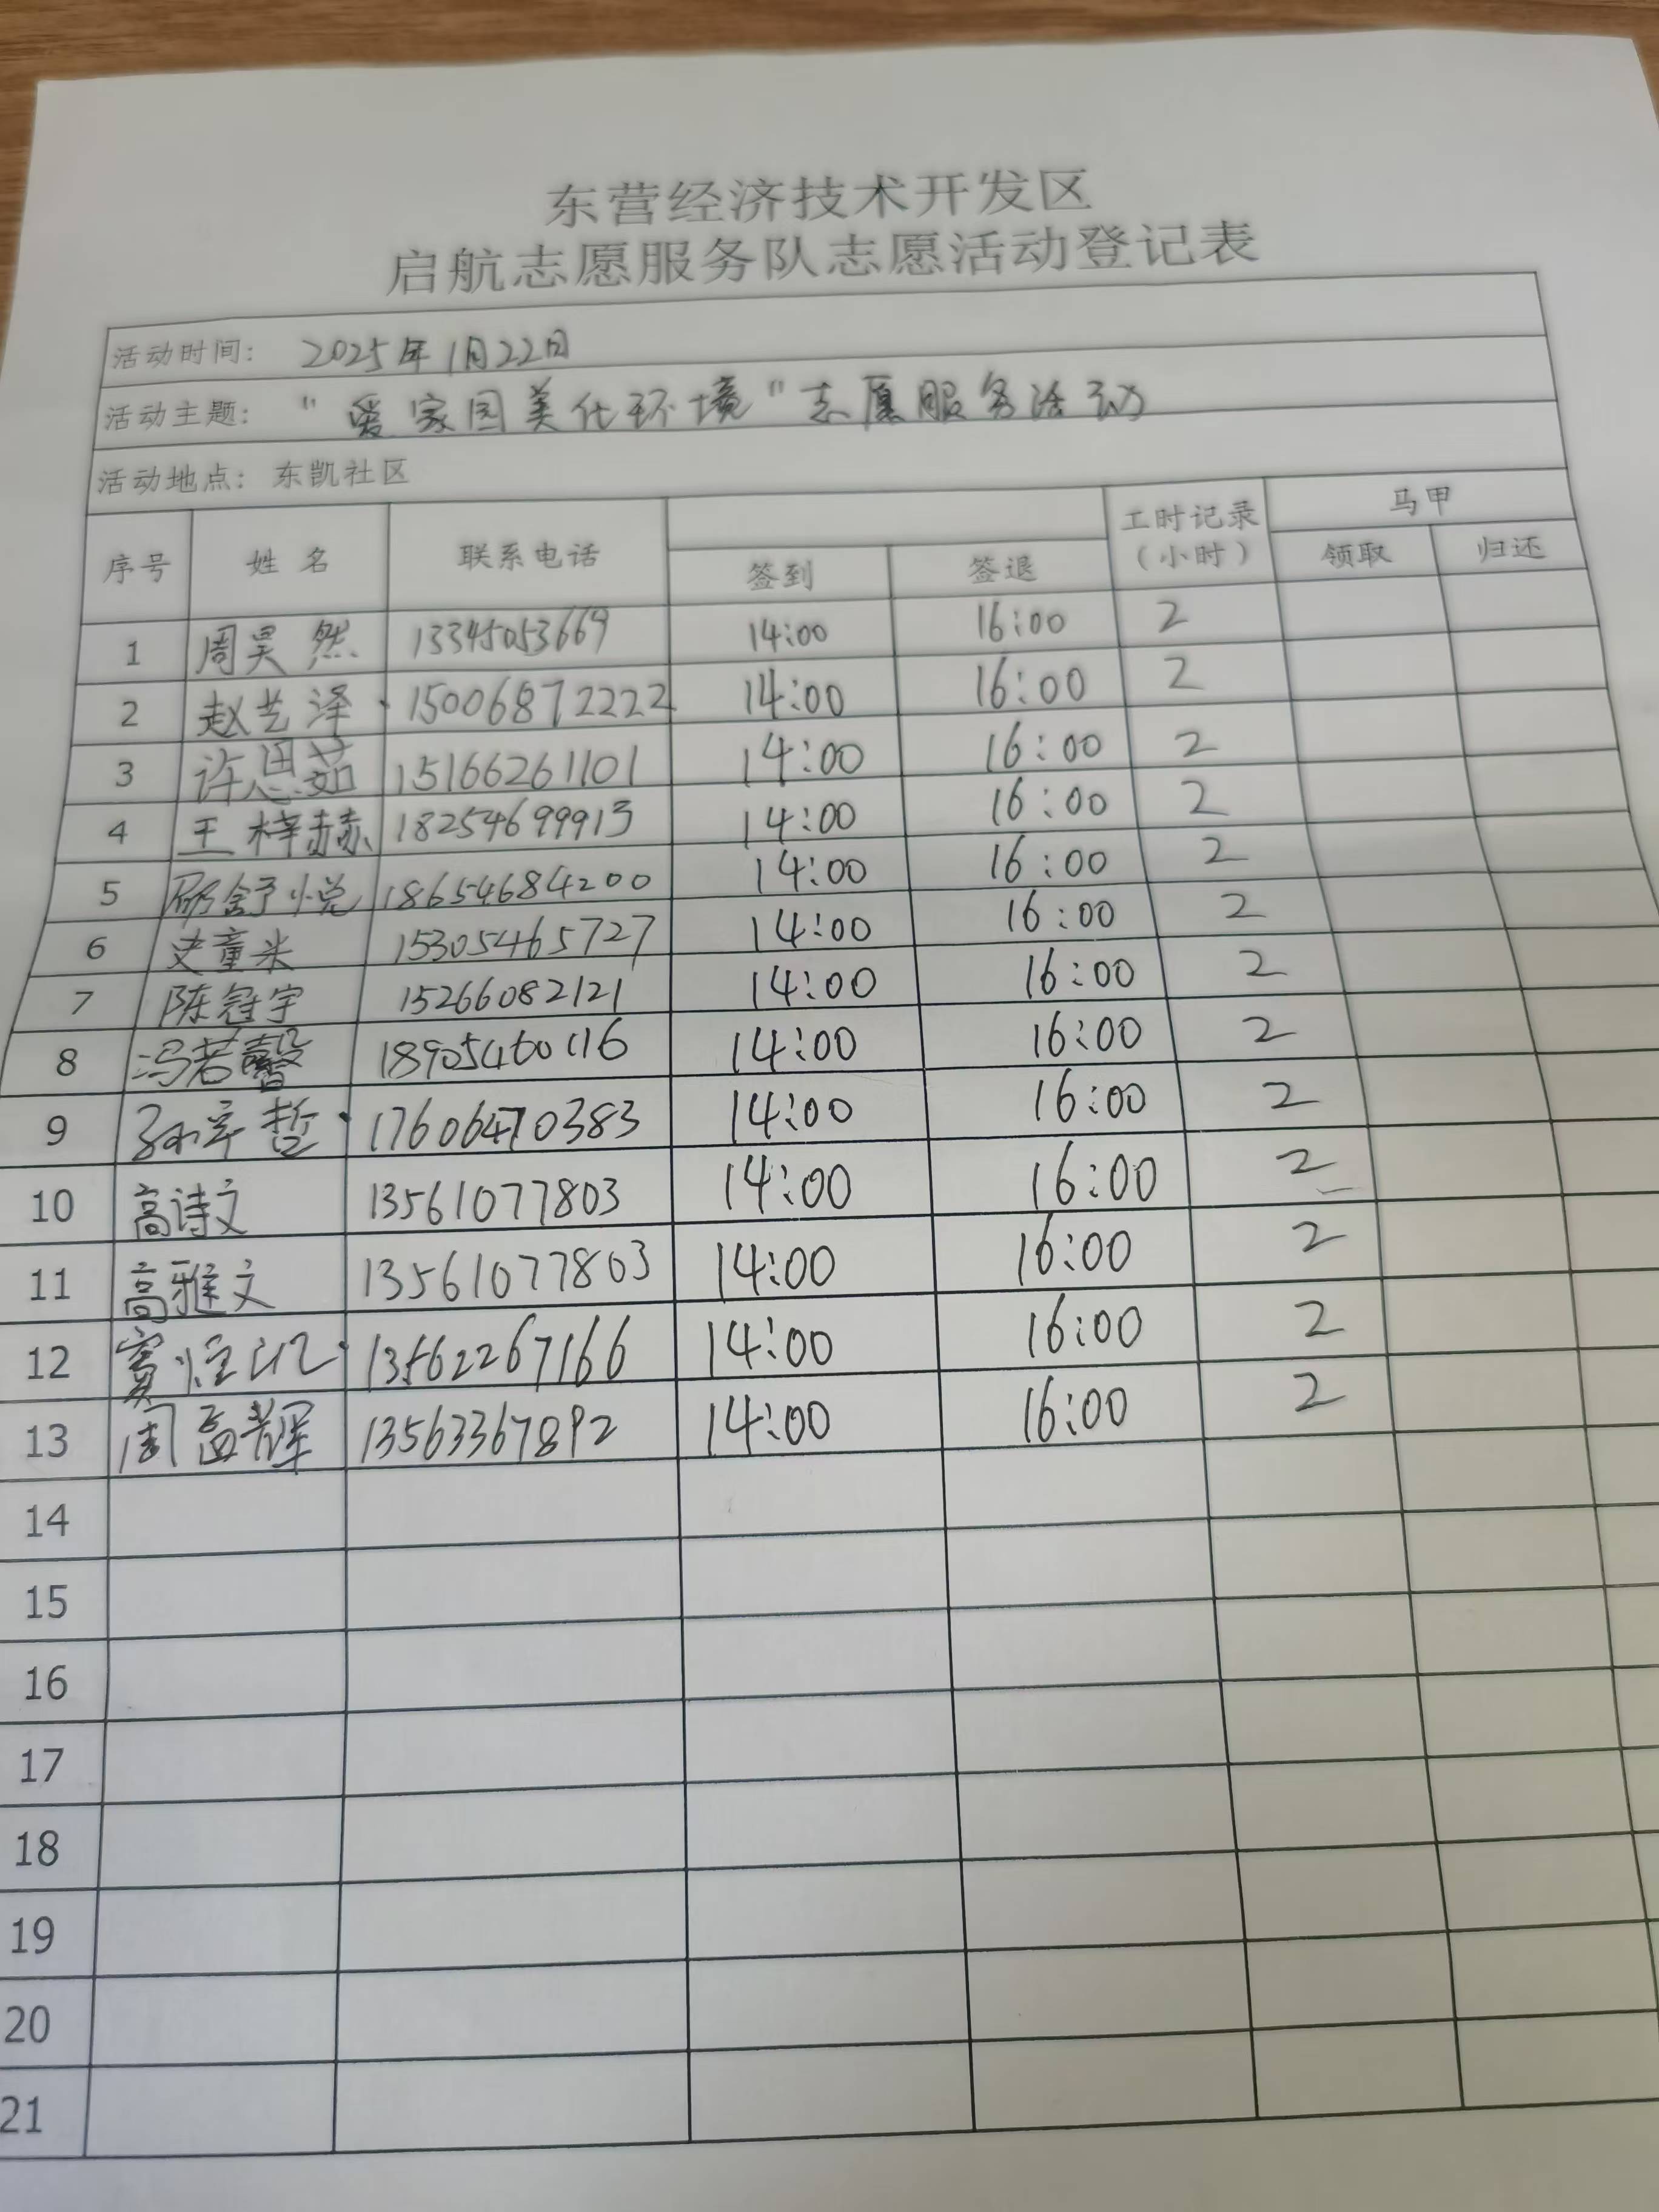 东营经济技术开发区
启航志愿服务队志愿活动登记表
活动时间： 2025年1月22日
活动主题： "爱家园美化环境"志愿服务活动
活动地点：东凯社区
序号 姓名 联系电话 签到 签退 工时记录（小时） 马甲 领取 归还
1 周昊然 13345053669 14:00 16:00 2
2 赵艺泽 15006872222 14:00 16:00 2
3 许思茹 15166261101 14:00 16:00 2
4 王梓赫 18254699913 14:00 16:00 2
5 舒悦 18654684200 14:00 16:00 2
6 史童米 15305465727 14:00 16:00 2
7 陈冠宇 15266082121 14:00 16:00 2
8 冯若馨 18905460116 14:00 16:00 2
9 孙宇哲 17606470383 14:00 16:00 2
10 高诗文 13561077803 14:00 16:00 2
11 高雅文 13561077803 14:00 16:00 2
12 13562267166 14:00 16:00 2
13 周孟辉 13563367892 14:00 16:00 2
14
15
16
17
18
19
20
21